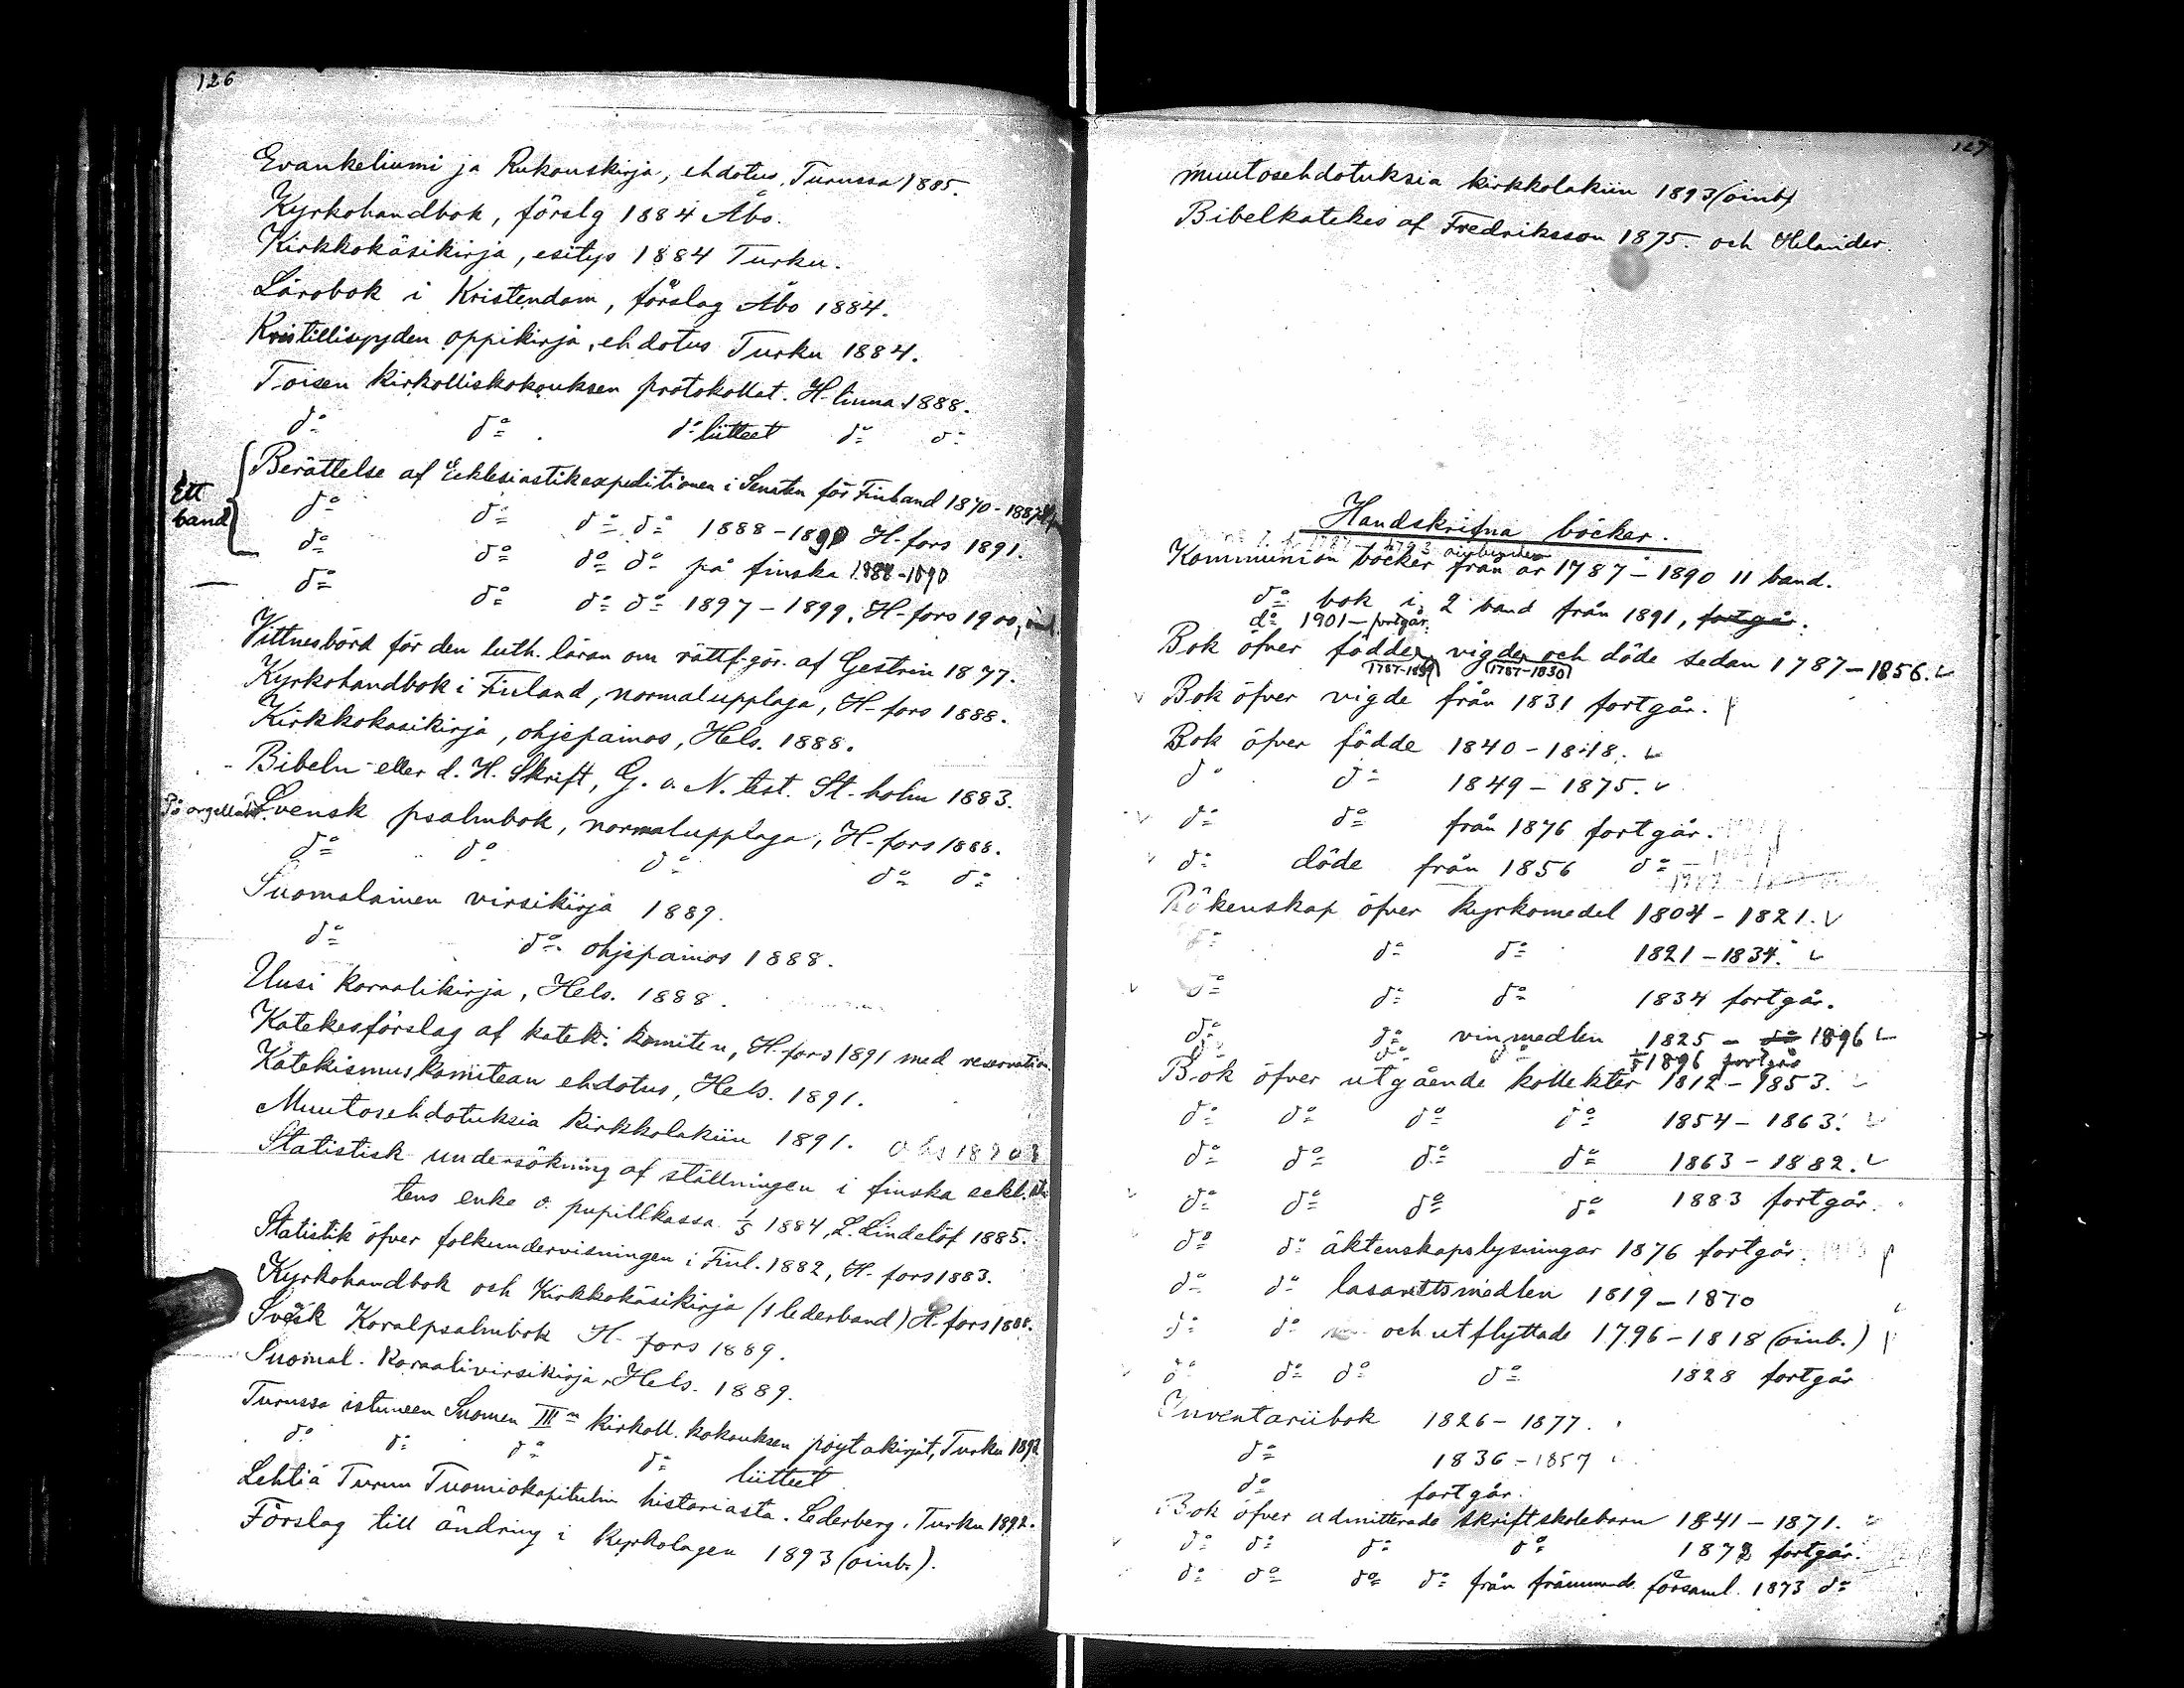 126
Evankeliumi ja Rukouskirja, ehdotus, Turussa 1885.
Kyrkohandbok, förslg 1884 Åbo.
Kirkkokäsikirja, esitys 1884 Turku.
Lärobok i Kristendom, förslag Åbo 1884.
Kristillisyyden oppikirja, ehdotus Turku 1884.
Toisen Kirkolliskokouksen protokollat. H-linna 1888.
do do do liitteet do do
Berättelse af Ecklesiastikexpeditionen i Senaten för Finland 1870-1887
Ett band
do do do do 1888-1890 H-fors 1891.
do do do do på finska 1888-1890
do do do do 1897-1899, H-fors 1900,
Vittnesbörd för den luth. läran om rättf.gör. af Gestrin 1877.
Kyrkohandbok i Finland, normalupplaga, H-fors 1888.
Kirkkokasikirja, ohjepainos, Hels. 1888.
Bibeln eller d. H. Skrift, G. o. N. test. St-holm 1883.
På orgelläkt. Svensk psalmbok, normalupplaga, H-fors 1888.
do do do do do
Suomalainen virsikirja 1889.
do do ohjepainos 1888.
Uusi koraalikirja, Hels. 1888.
Katekesförslag af katek: komiten, H-fors 1891 med reservation.
Katekismuskomitean ehdotus, Hels. 1891.
Muutosehdotuksia Kirkkolakiin 1891.
Statistisk undersökning af ställningen i finska eckl.
tens enke o. pupillkassa 1/5 1884, L. Lindelöf 1885.
Statistik öfver folkundervisningen i Finl. 1882, H-fors 1883.
Kyrkohandbok och Kirkkokäsikirja (1 lederband) H-fors 1888.
Svesk Koralpsalmbok H-fors 1889.
Suomal. Koraalivirsikirja, Hels. 1889.
Turussa istuneen Suomen IIIn kirkoll. kokouksen pöytäkirjat, Turku 1892
do do do do liitteet
Lehtiä Turun Tuomiokapitulin historiasta. Lederberg. Turku 1892.
Förslag till ändring i Kyrkolagen 1893 (oinb.).
127
Muutosehdotuksia kirkkolakiin 1893 (oinb)
Bibelkatekes af Fredriksson 1875. och Helander.
Handskrifna böcker.
Kommunion böcker från år 1787-1890 11 band.
do bok i 2 band från 1891, fortgår.
do 1901-fortgår.
Bok öfver födde, vigde och döde sedan 1787-1856.
1787-1839 1787-1830
Bok öfver vigde från 1831 fortgår.
Bok öfver födde 1840-1848.
do do 1849-1875.
do do från 1876 fortgår.
do döde från 1856 do
Räkenskap öfver kyrkomedel 1804-1821.
do do do 1821-1834.
do do do 1834 fortgår.
do do vinmedlen 1825 - do 1896
do do do 1/5 1896 fortgår
Bok öfver utgående kollekter 1812-1853.
do do do do 1854-1863.
do do do do 1863-1882.
do do do do 1883 fortgår.
do do äktenskapslysningar 1876 fortgår.
do do lasarettsmedlen 1819-1870
do do och utflyttade 1796-1818 (oinb.)
do do do do 1828 fortgår
Inventariibok 1826-1877.
do 1836-1857
do fortgår.
Bok öfver admitterade skriftskolebarn 1841-1871.
do do do do 1872 fortgår.
do do do do från främmande församl. 1873 do